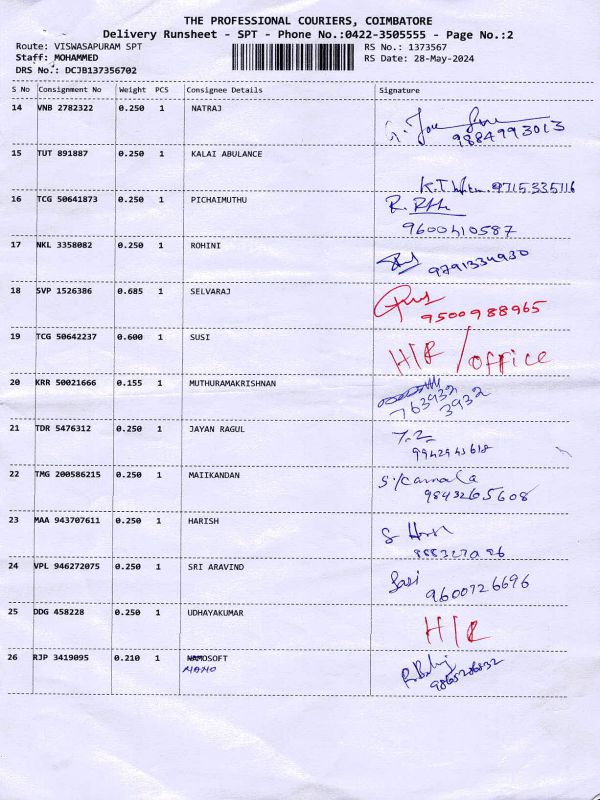 THE PROFESSIONAL COURIERS, COIMBATORE
Delivery Runsheet - SPT - Phone No.:0422-3505555 - Page No.:2
Route: VISWASAPURAM SPT RS No.: 1373567
Staff: MOHAMMED RS Date: 28-May-2024
DRS No.: DCJB137356702
S No Consignment No Weight PCS Consignee Details Signature
14 VNB 2782322 0.250 1 NATRAJ
9884993013
15 TUT 891887 0.250 1 KALAI ABULANCE
9715335116
16 TCG 50641873 0.250 1 PICHAIMUTHU
9600410587
17 NKL 3358082 0.250 1 ROHINI
9791334930
18 SVP 1526386 0.685 1 SELVARAJ
9500988965
19 TCG 50642237 0.600 1 SUSI H/R /office
20 KRR 50021666 0.155 1 MUTHURAMAKRISHNAN
763932
3932
21 TDR 5476312 0.250 1 JAYAN RAGUL
22 TMG 200586215 0.250 1 MAIIKANDAN
9843265608
23 MAA 943707611 0.250 1 HARISH
24 VPL 946272075 0.250 1 SRI ARAVIND Sasi
9600726696
25 DDG 458228 0.250 1 UDHAYAKUMAR H/R
26 RJP 3419095 0.210 1 NAMOSOFT
NANO